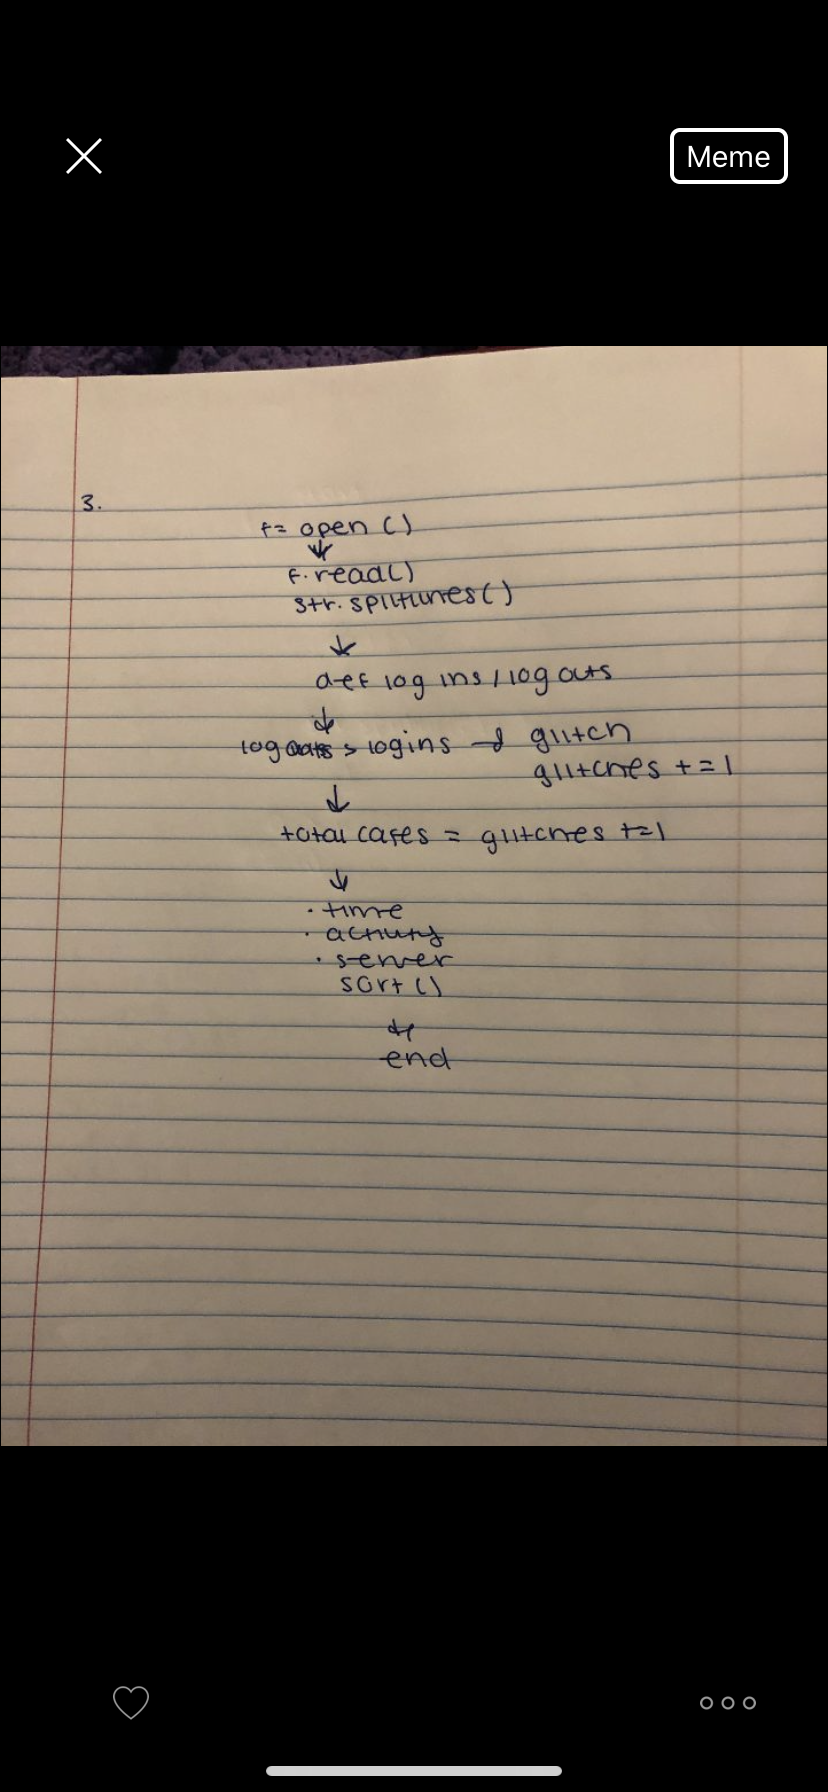 Meme
3.
f= open ()
f.read()
str.splitlines()
def log ins / log outs
log outs > logins → glitch
glitches + = 1
total cafes = glitches +=1
· time
· activity
· server
sort ()
end